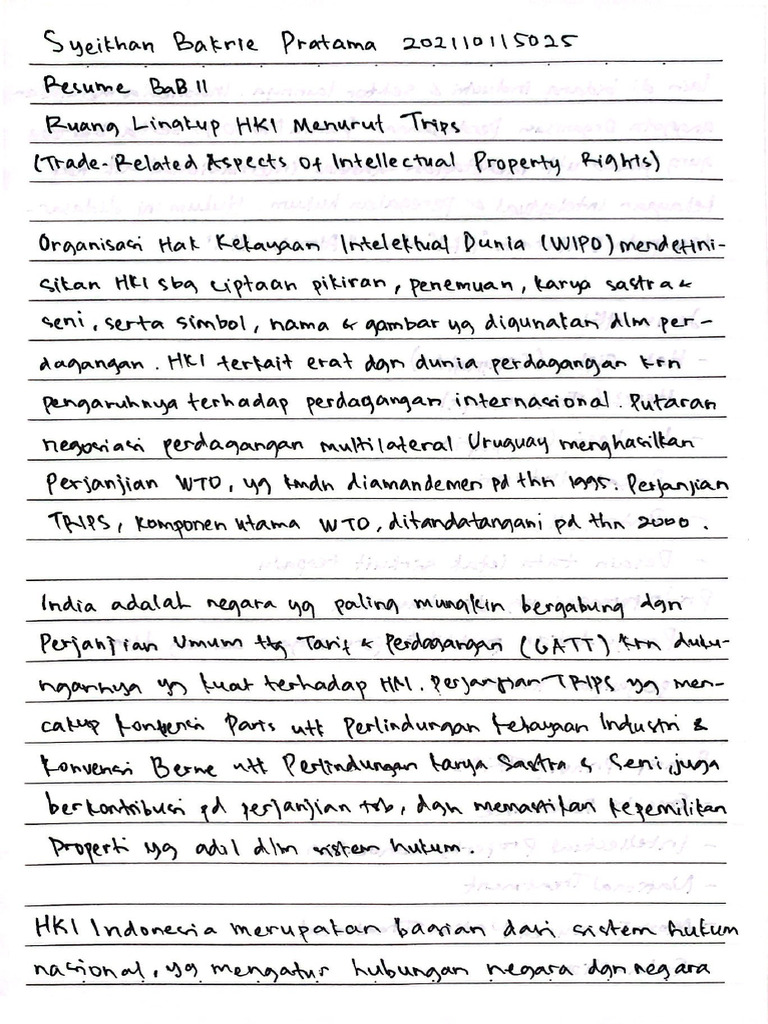 Syeikhan Bakrie Pratama 202110115025
Resume BaB II
Ruang Lingkup HKI Menurut Trips
(Trade-Related Aspects Of Intellectual Property Rights)
Organisasi Hak Kekayaan Intelektual Dunia (WIPO) mendefini-
sikan HKI sbg ciptaan pikiran, penemuan, karya sastra &
seni, serta simbol, nama & gambar yg digunakan dlm per-
dagangan. HKI terkait erat dgn dunia perdagangan krn
pengaruhnya terhadap perdagangan internasional. Putaran
negosiasi perdagangan multilateral Uruguay menghasilkan
Perjanjian WTO, yg kmdn diamandemen pd thn 1995. Perjanjian
TRIPS, komponen utama WTO, ditandatangani pd thn 2000.
India adalah negara yg paling mungkin bergabung dgn
Perjanjian Umum ttg Tarif & Perdagangan (GATT) krn duku-
ngannya yg kuat terhadap HKI. Perjanjian TRIPS yg men-
cakup Konvensi Paris utk Perlindungan Kekayaan Industri &
Konvensi Berne utk Perlindungan Karya Sastra & Seni, juga
berkontribusi pd perjanjian tsb, dgn memastikan kepemilikan
Properti yg adil dlm sistem hukum.
HKI Indonesia merupakan bagian dari sistem hukum
nasional, yg mengatur hubungan negara dgn negara